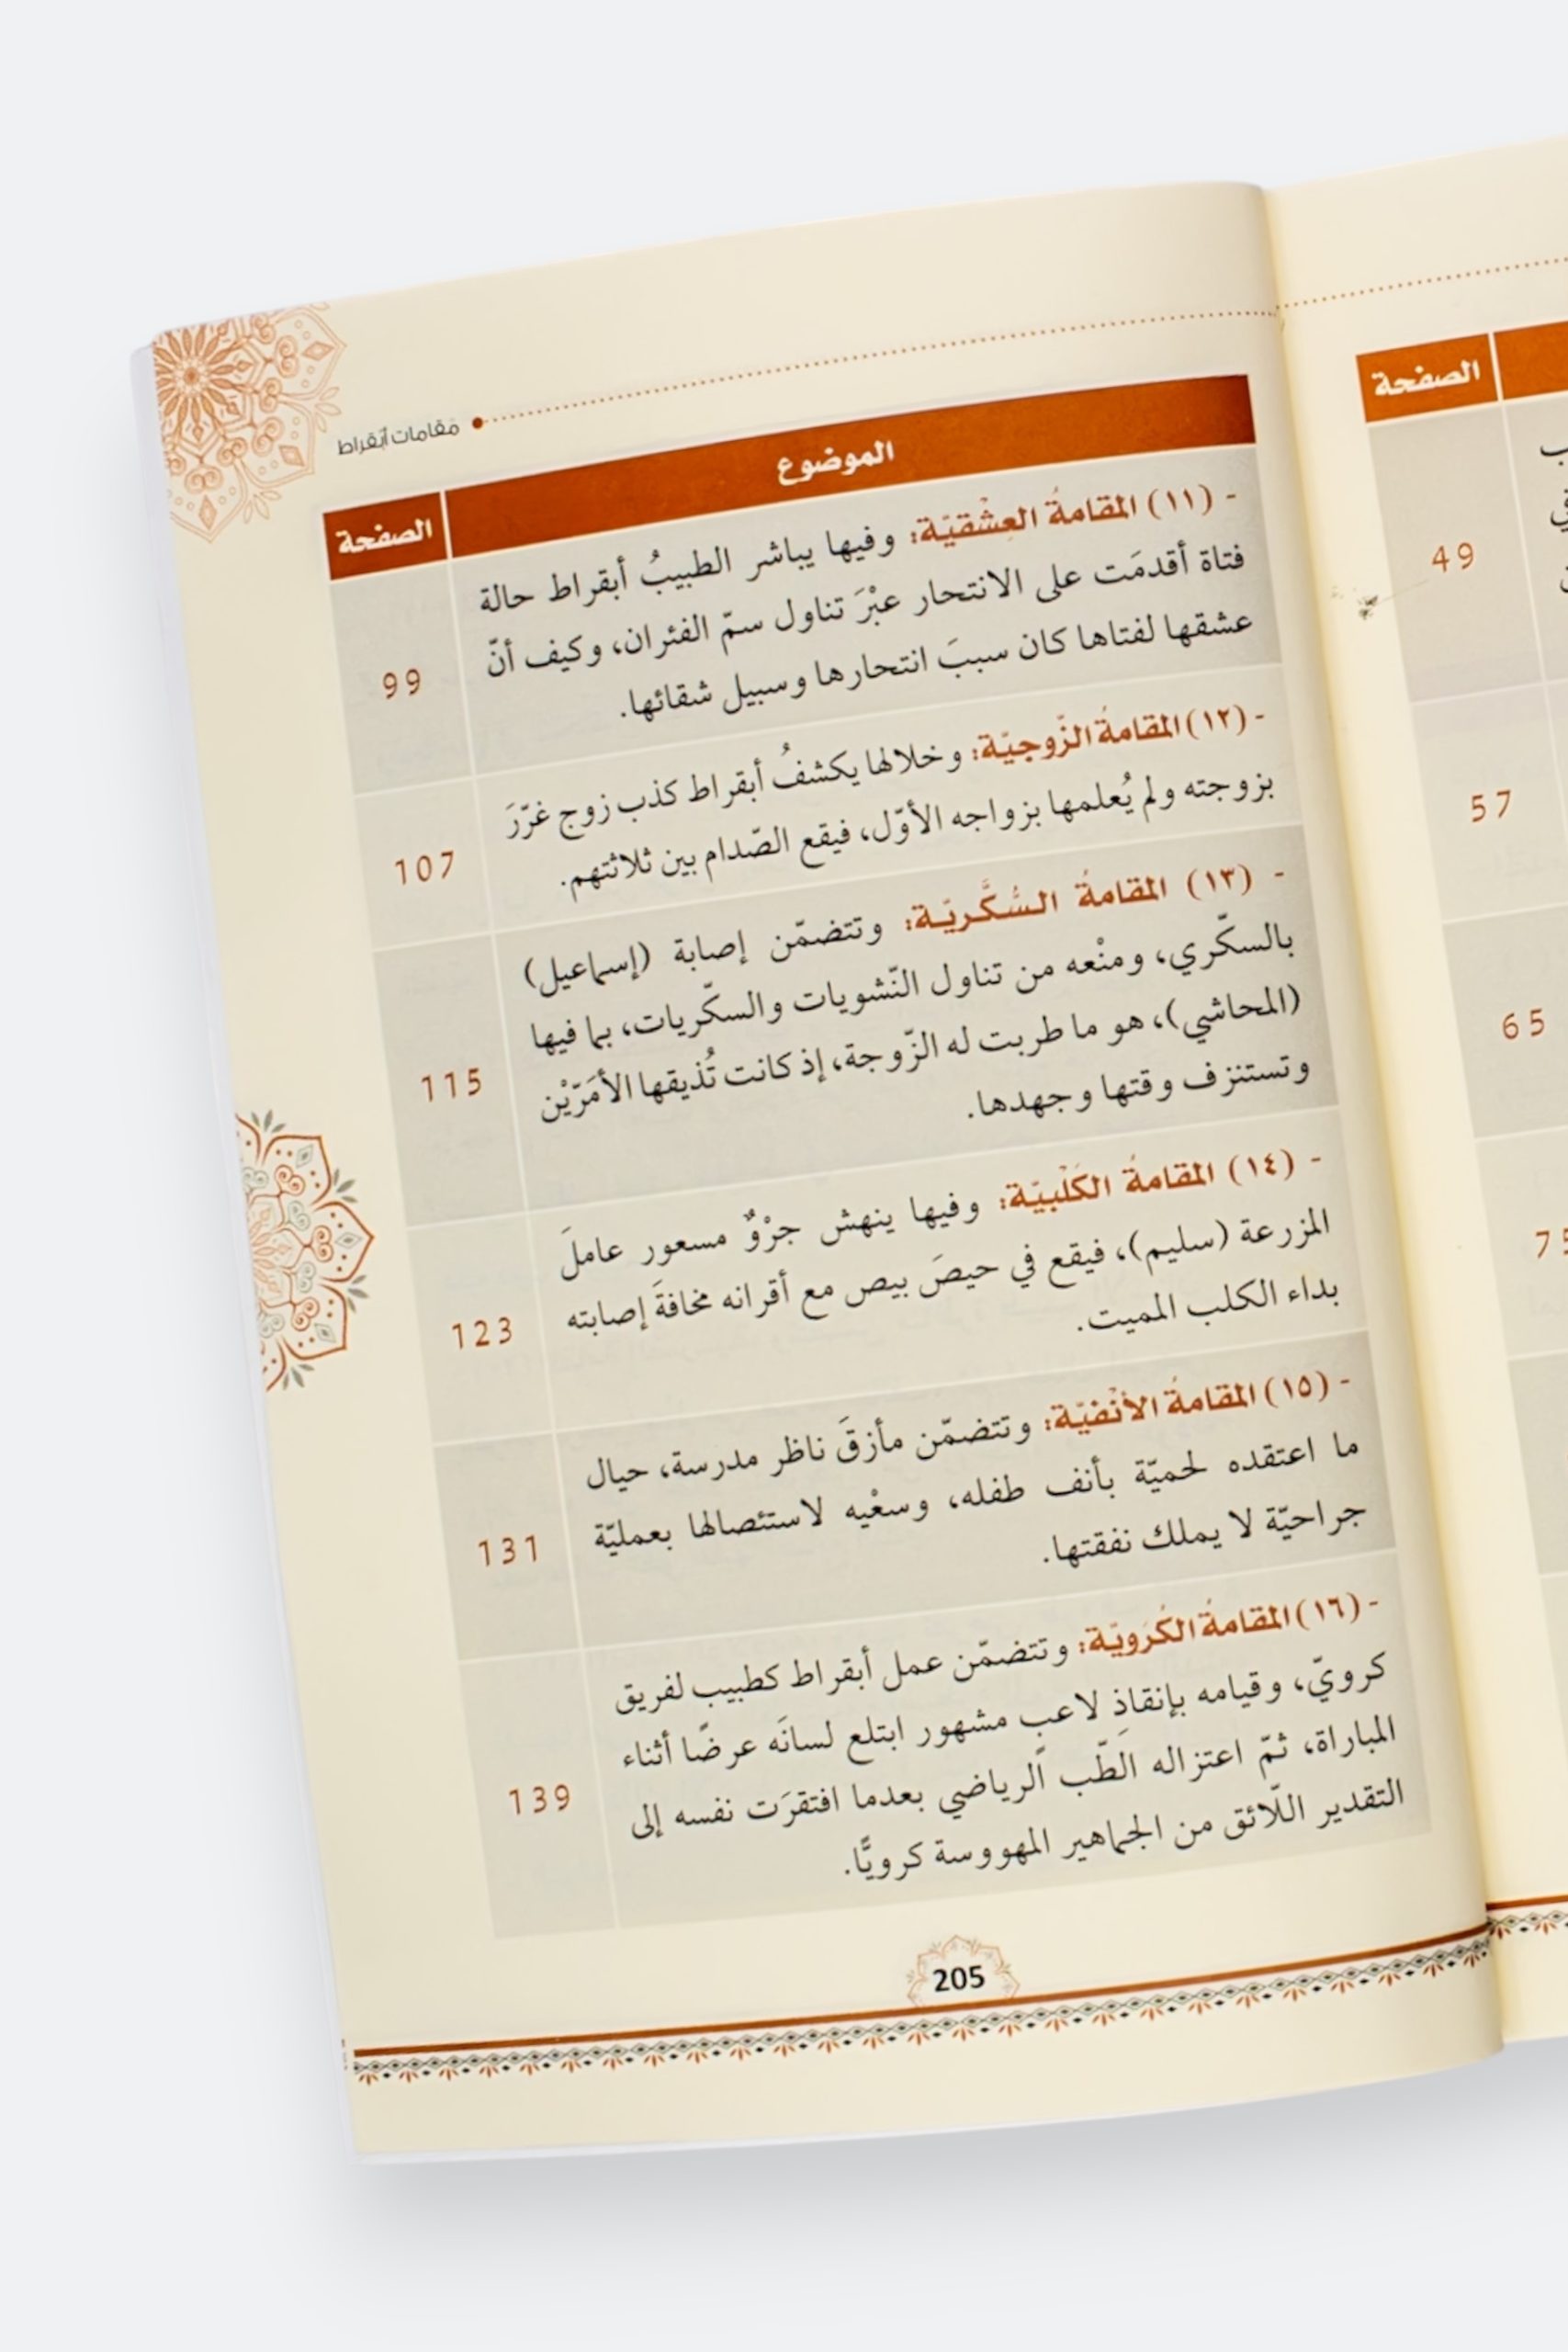 مَقامات أبُقراط
الموضوع
الصفحة
- (١١) المقامةُ العِشْقيّة: وفيها يباشر الطبيبُ أبقراط حالة
فتاة أقدمَت على الانتحار عبْرَ تناول سمّ الفئران، وكيف أنّ
عشقها لفتاها كان سببَ انتحارها وسبيل شقائها.
99
- (١٢) المقامةُ الزّوجيّة: وخلالها يكشفُ أبقراط كذب زوج غرّرَ
بزوجته ولم يُعلمها بزواجه الأوّل، فيقع الصّدام بين ثلاثتهم.
107
- (١٣) المقامةُ السُّكَّريّة: وتتضمّن إصابة (إسماعيل)
بالسكّري، ومنْعه من تناول النّشويات والسكّريات، بما فيها
(المحاشي)، هو ما طربت له الزّوجة، إذ كانت تُذيقها الأمَرّيْن
وتستنزف وقتها وجهدها.
115
- (١٤) المقامةُ الكَلْبيّة: وفيها ينهش جرْوٌ مسعور عاملَ
المزرعة (سليم)، فيقع في حيصَ بيص مع أقرانه مخافةَ إصابته
بداء الكلب المميت.
123
- (١٥) المقامةُ الأنْفيّة: وتتضمّن مأزقَ ناظر مدرسة، حيال
ما اعتقده لحميّة بأنف طفله، وسعْيه لاستئصالها بعمليّة
جراحيّة لا يملك نفقتها.
131
- (١٦) المقامةُ الكُرَويّة: وتتضمّن عمل أبقراط كطبيب لفريق
كرويّ، وقيامه بإنقاذِ لاعبٍ مشهور ابتلع لسانَه عرضًا أثناء
المباراة، ثمّ اعتزاله الطّب الرياضي بعدما افتقرَت نفسه إلى
التقدير اللّائق من الجماهير المهووسة كرويًّا.
139
205
الصفحة
49
57
65